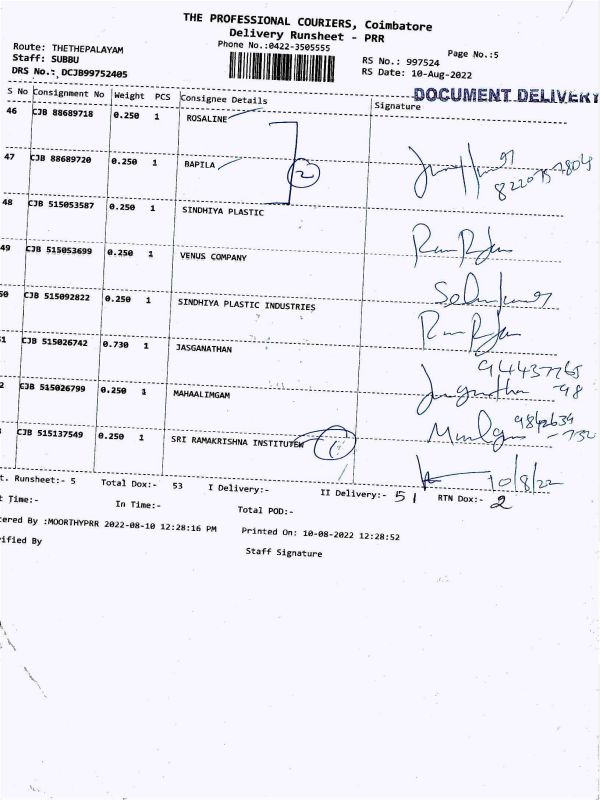 THE PROFESSIONAL COURIERS, Coimbatore
Delivery Runsheet - PRR
Phone No.:0422-3505555
Page No.:5
Route: THETHEPALAYAM
Staff: SUBBU
DRS No.: DCJB99752405
RS No.: 997524
RS Date: 10-Aug-2022
DOCUMENT DELIVERY
S No Consignment No Weight PCS Consignee Details Signature
46 CJB 88689718 0.250 1 ROSALINE
47 CJB 88689720 0.250 1 BAPILA 2
48 CJB 515053587 0.250 1 SINDHIYA PLASTIC
49 CJB 515053699 0.250 1 VENUS COMPANY
50 CJB 515092822 0.250 1 SINDHIYA PLASTIC INDUSTRIES
1 CJB 515026742 0.730 1 JASGANATHAN 94437765
-98
2 CJB 515026799 0.250 1 MAHAALIMGAM 9842639
-732
CJB 515137549 0.250 1 SRI RAMAKRISHNA INSTITUTEW 1
10/8/22
t. Runsheet:- 5 Total Dox:- 53 I Delivery:- II Delivery:- 51 RTN Dox:- 2
t Time:- In Time:- Total POD:-
tered By :MOORTHYPRR 2022-08-10 12:28:16 PM Printed On: 10-08-2022 12:28:52
rified By Staff Signature